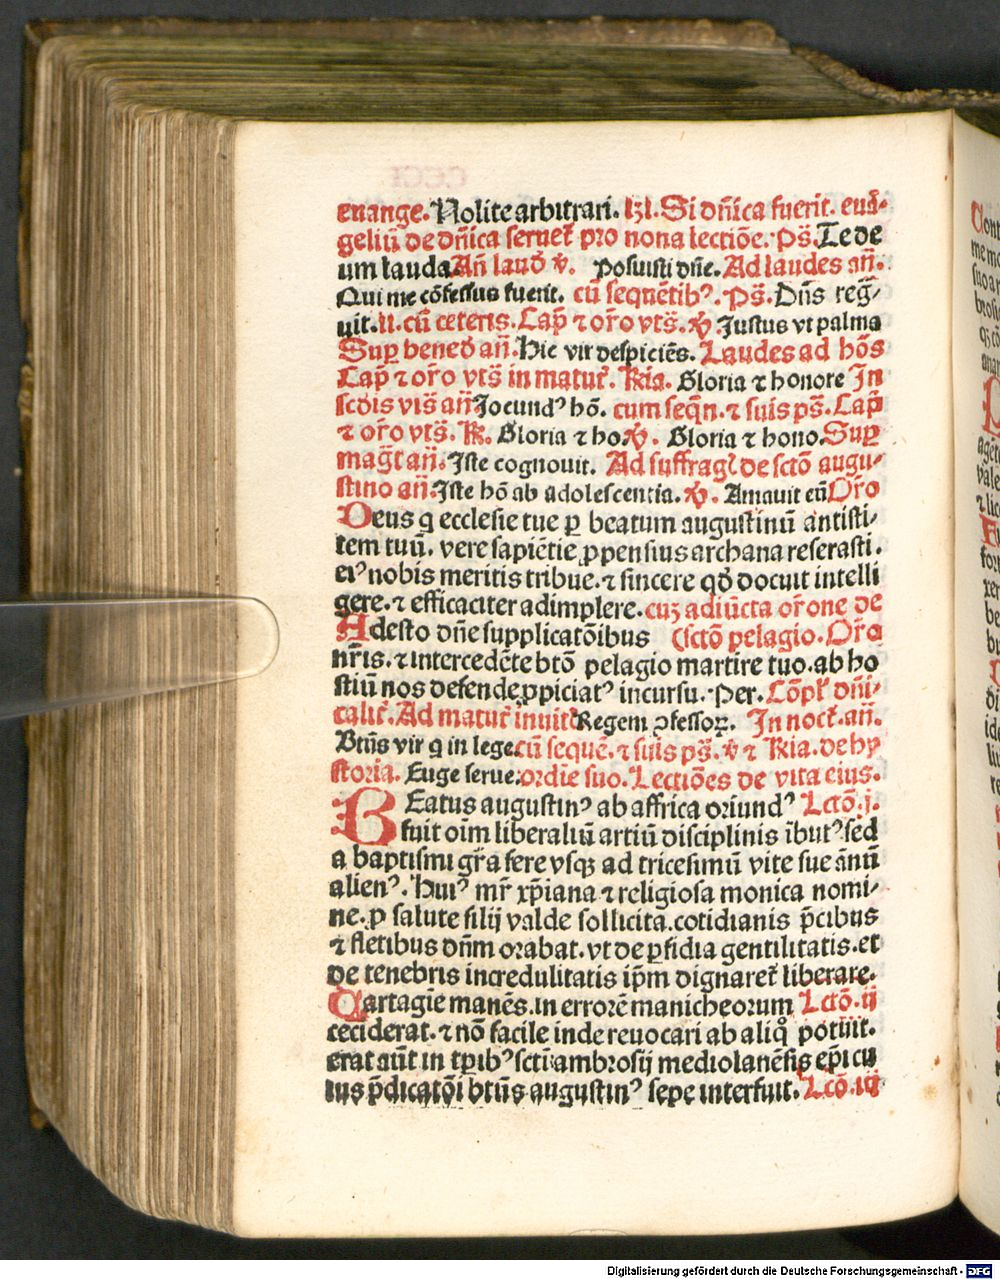 euange. Nolite arbitrari. Si dn̄ica fuerit. euā-
geliū de dn̄ica seruet̃ pro nona lectiōe. Ps̄. Te de
um lauda Añ laud ℣. Posuisti dn̄e. Ad laudes añ.
Qui me cōfessus fuerit. cū sequētibꝰ. Ps̄. Dn̄s reg̃-
uit. cū ceteris. Cap̄ ⁊ or̄o vts̄. ℣ Justus vt palma
Suꝑ bened añ. Hic vir despiciēs. Laudes ad hōs
Cap̄ ⁊ or̄o vts̄ in matut̃. R̄ia. Gloria ⁊ honore In
scd̄is vis̄ añ Jocundꝰ hō. cum seqn̄. ⁊ suis ps̄. Cap̄
⁊ or̄o vts̄. R̄. Gloria ⁊ ho ℣. Gloria ⁊ hono. Suꝑ
mag̃t añ. Iste cognouit. Ad suffrag̃ de sctō augu-
stino añ. Iste hō ab adolescentia. ℣. Amauit eū Or̄o
Deus q ecclesie tue ꝑ beatum augustinū antisti-
tem tuū. vere sapiētie ꝓpensius archana reserasti.
eiꝰ nobis meritis tribue. ⁊ sincere qd̄ docuit intelli
gere. ⁊ efficaciter adimplere. cuꝫ adiūcta or̄one de
Adesto dn̄e supplicatōibus (sctō pelagio. Or̄o
nr̄is. ⁊ intercedēte btō pelagio martire tuo. ab ho
stiū nos defende ꝓpiciatꝰ incursu. Per. Cōpl̃ dn̄i-
calit̃. Ad matut̃ inuit̃ Regem ꝯfessoꝝ. In noct̃. añ.
Btūs vir q in lege. cū sequē. ⁊ suis ps̄. ℣ ⁊ R̄ia. de hy
storia. Euge serue. ordīe suo. Lectiōes de vita eius.
BEatus augustinꝰ ab affrica oriundꝰ Lctō. j.
fuit oīm liberaliū artiū disciplinis ībutꝰ sed
a baptismi gr̄a fere vsqꝫ ad tricesimū vite sue ānū
alienꝰ. Huiꝰ mr̄ xp̄iana ⁊ religiosa monica nomi-
ne. ꝓ salute filij valde sollicita. cotidianis p̄cibus
⁊ fletibus dn̄m orabat. vt de ꝑfidia gentilitatis. et
de tenebris incredulitatis ip̄m dignaret̃ liberare.
Cartagīe manēs. in errorē manicheorum Lctō. ij
ceciderat. ⁊ nō facile inde reuocari ab aliq̊ potuit.
erat aūt in tp̄ibꝰ scti ambrosij mediolanēsis ep̄i cu
ius p̄dicatōi btūs augustinꝰ sepe interfuit. Lctō. iij
Digitalisierung gefördert durch die Deutsche Forschungsgemeinschaft - DFG